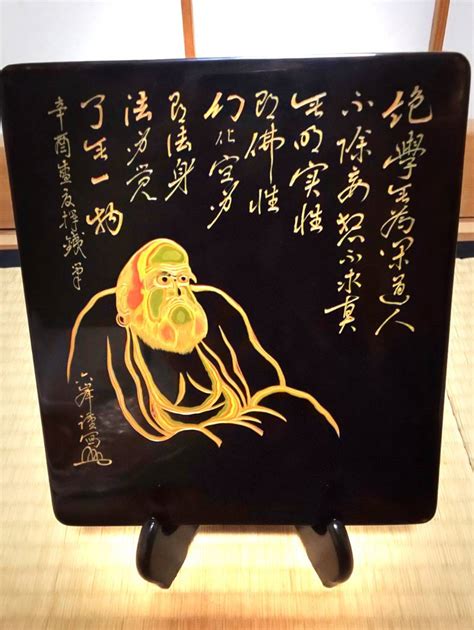 絶學無為閑道人
不除妄想不求真
無明実性
即佛性
幻化空身
即法身
法身覚
了無一物
辛酉